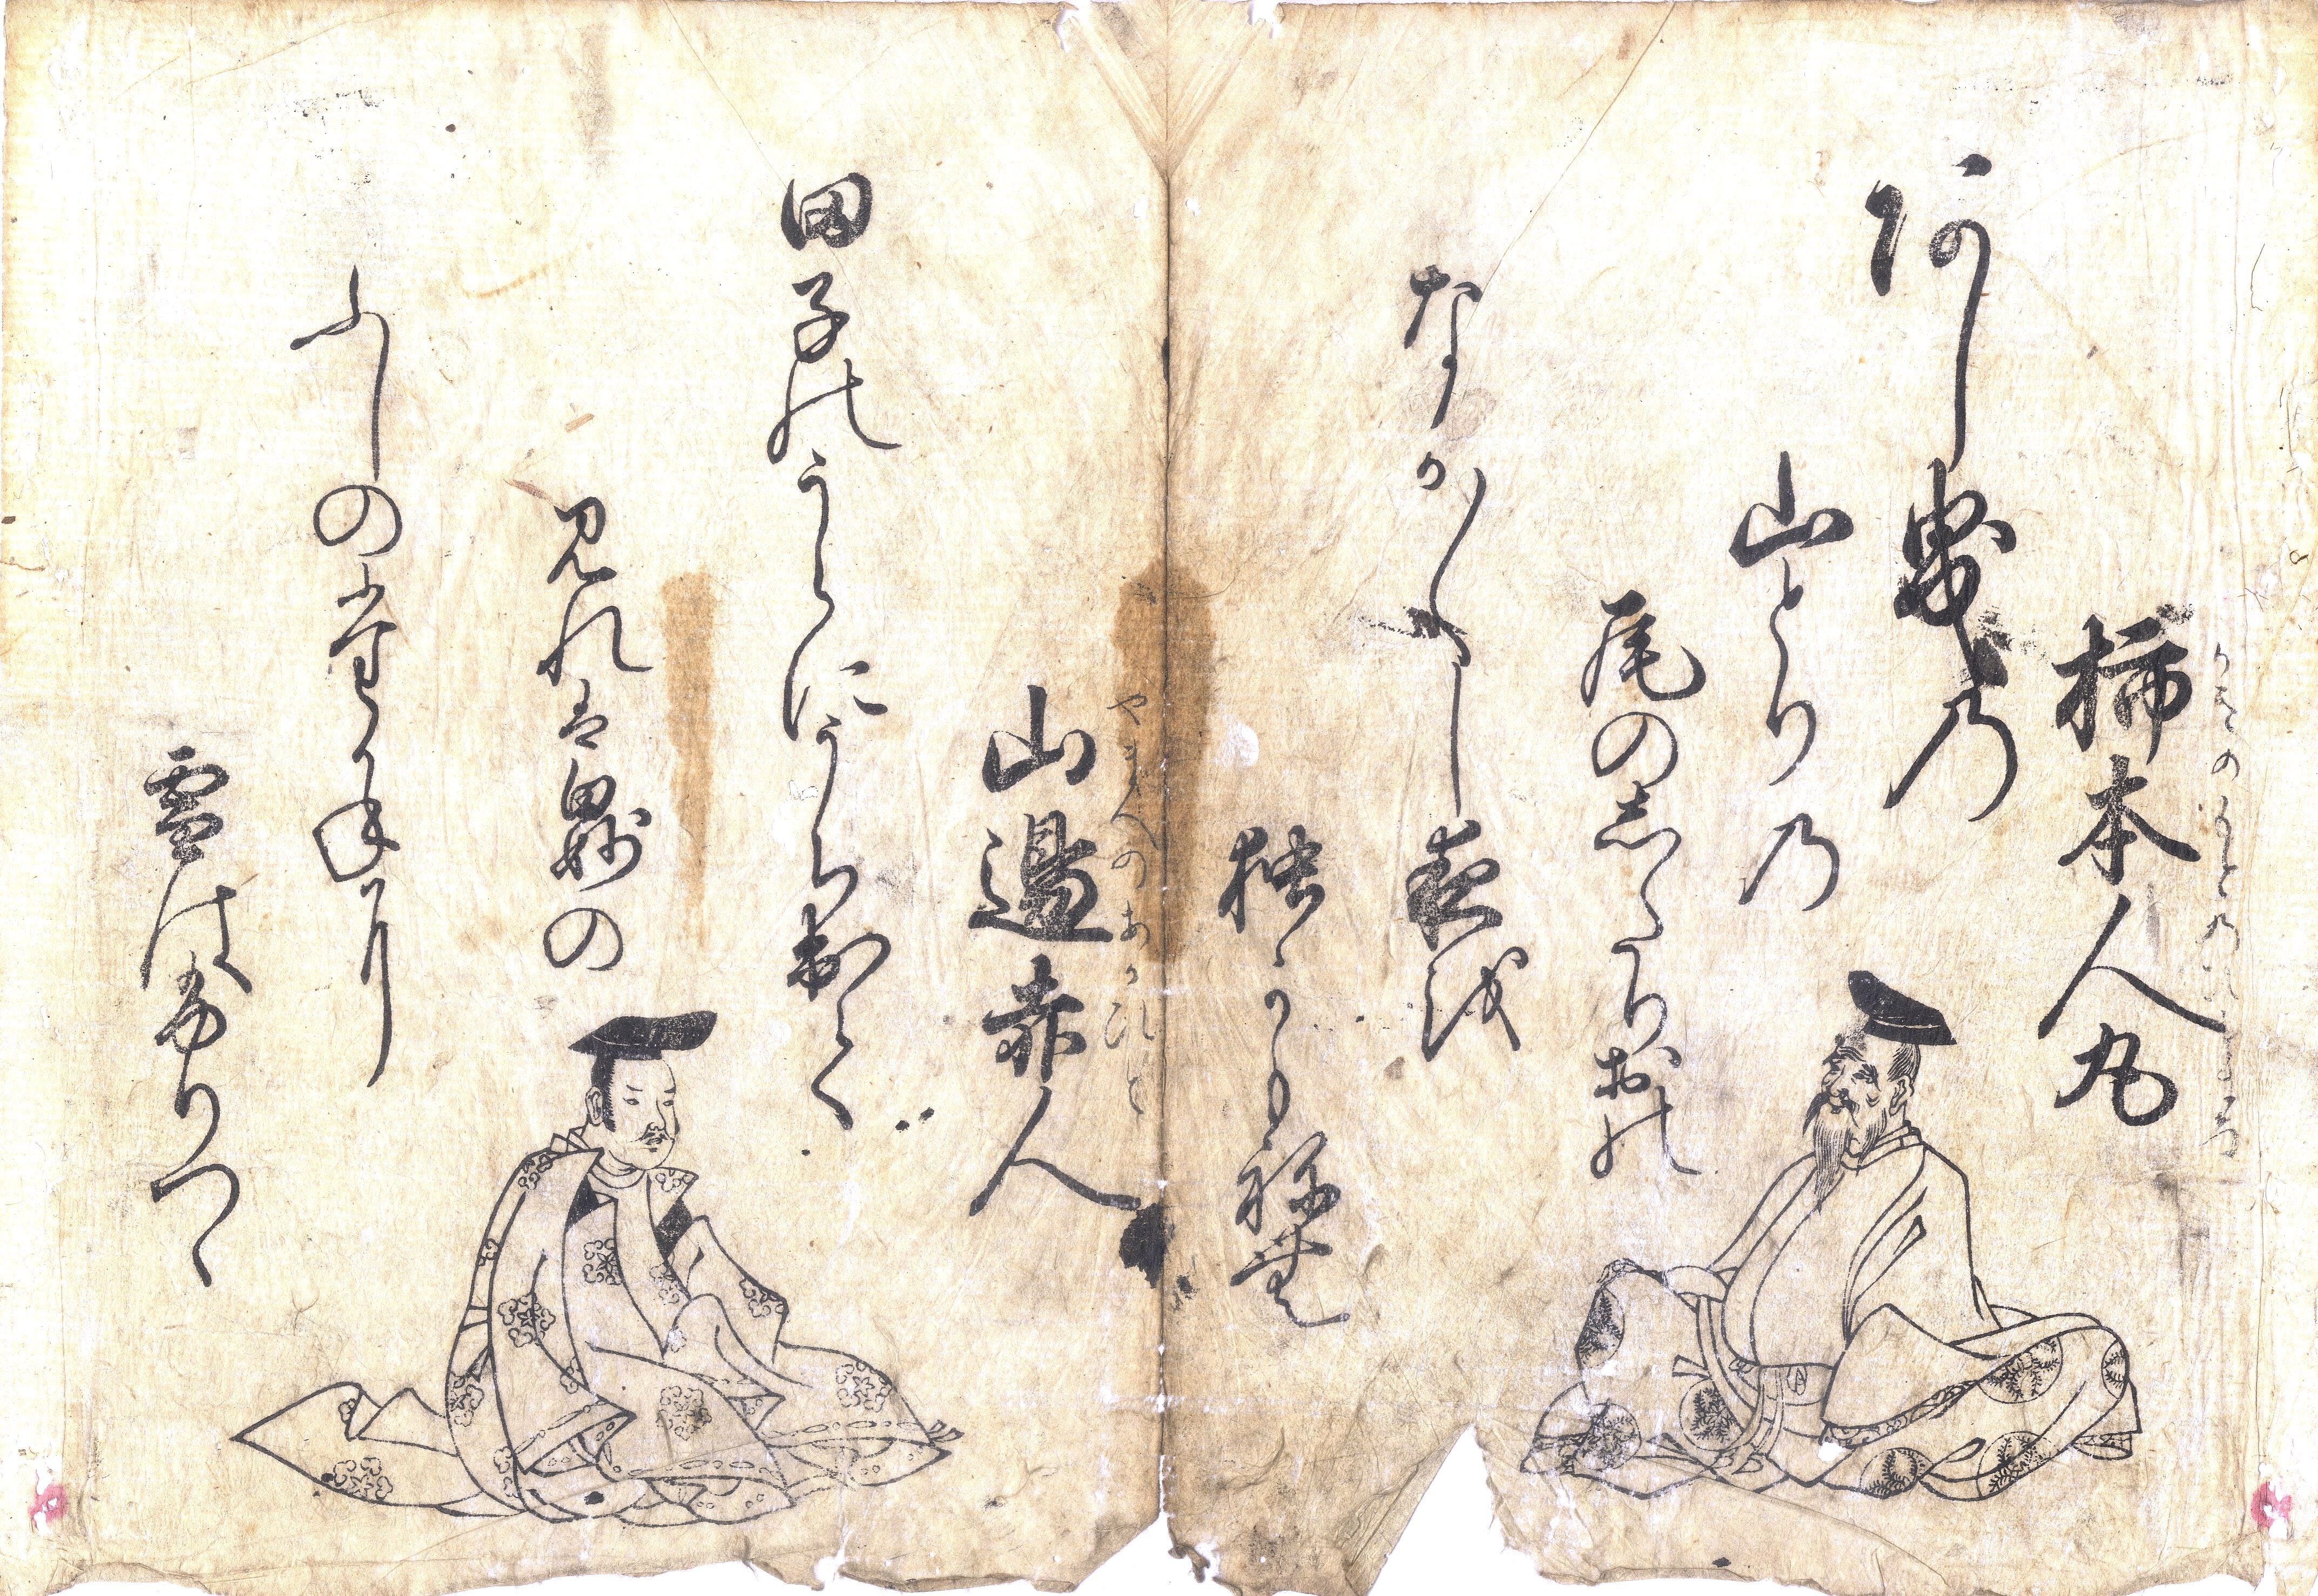 かきのもとのひとまろ
柿本人丸
あし曳乃
山とり乃
尾の志たりおの
なか〳〵し夜越
独かもね無
やまべのあかひと
山邉赤人
田子のうらにうち出て
見れは白妙の
ふしの堂か年に
雪はふりつゝ